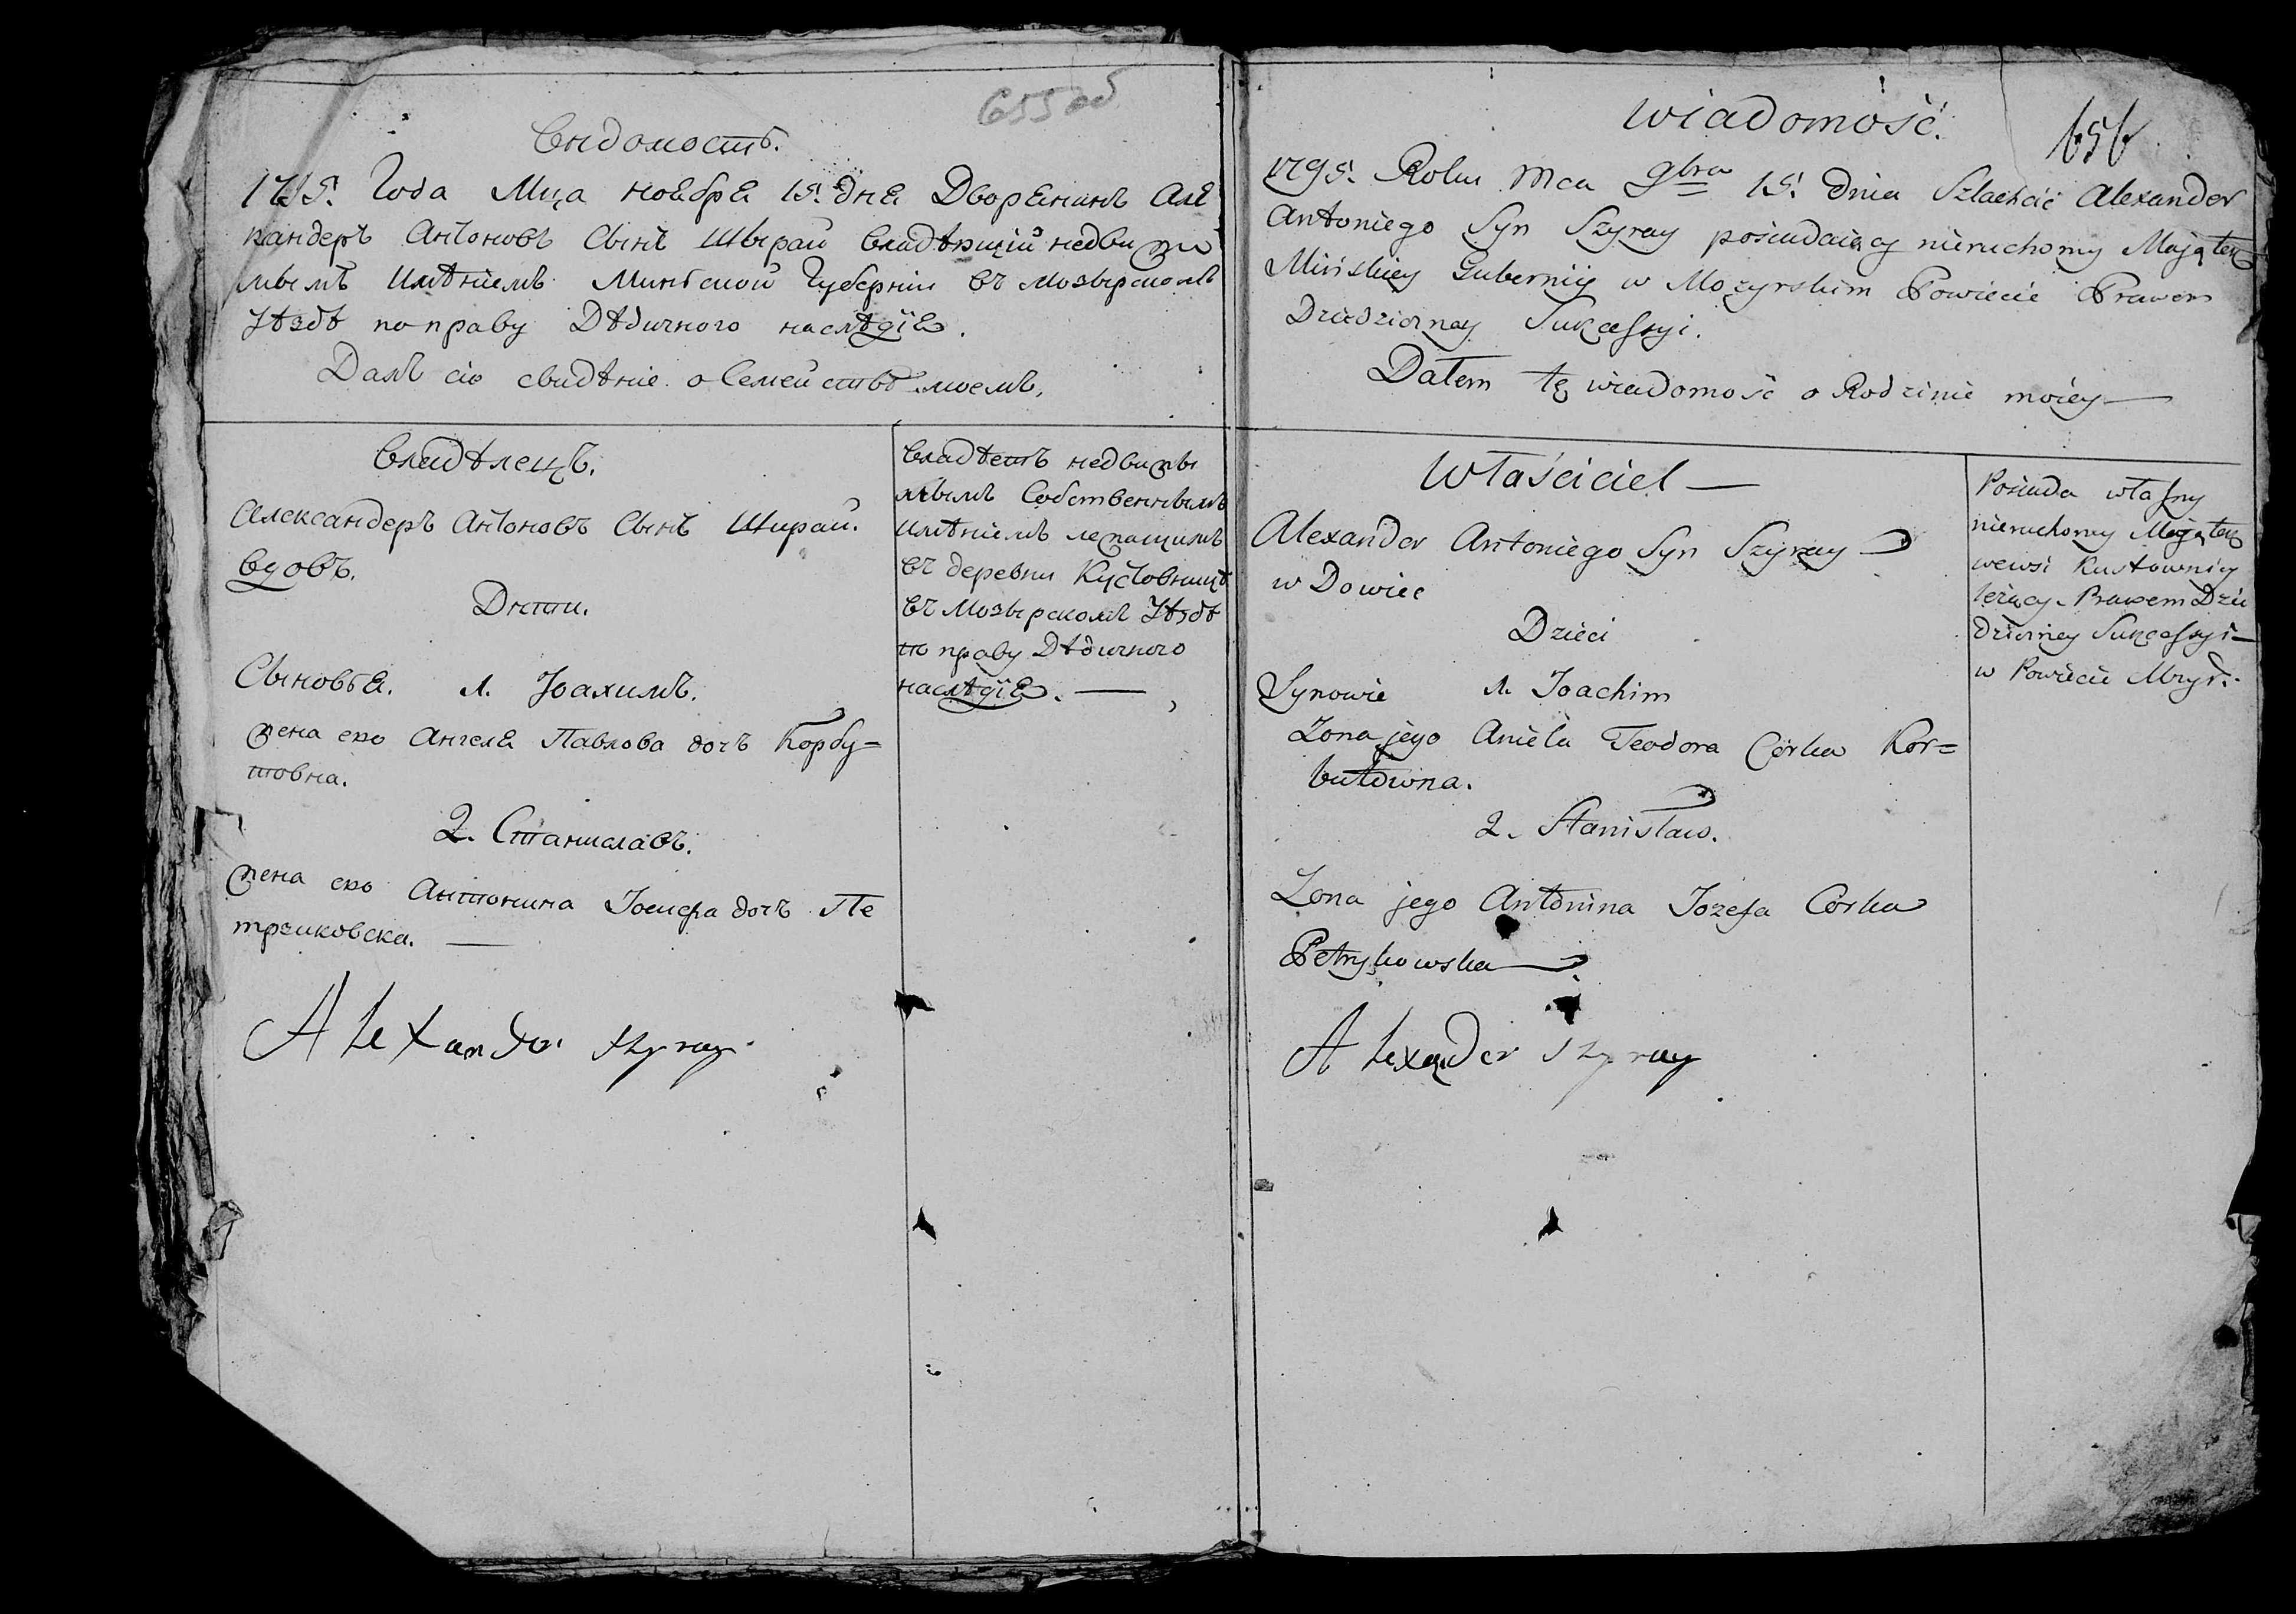 655 об
Вѣдомость.
1795. Года Мца ноебрѣ 15. днѣ Дворенинъ Але
ѯандеръ Антоновъ Сынъ Шырай владѣющій недвижи
мымъ Имѣніемъ Минской Губерніи въ Мозырскомъ
Уѣздѣ по праву Дѣдичного наслѣдіе.
Далъ сіо свидѣніе о Семействѣ моемъ.
Владѣлецъ.
Александеръ Антоновъ Сынъ Ширай.
вдовъ.
Дѣти.
Сыновѣе. 1. Іоахимъ.
жена ево Ангеле Павлова дочъ Корбу=
товна.
2. Станиславъ.
жена ево Антонина Іосифа дочъ Пе
трыковска.
Alexander Szyray
владѣетъ недвижи
мымъ Собственнымъ
имѣніемъ лежащимъ
въ деревни Кустовницѣ
въ Мозырскомъ Уѣздѣ
по праву Дѣдичного
наслѣдіе.
Wiadomość.
656
1795. Roku Mca 9bra 15. Dnia Szlachcic Alexander
Antoniego Syn Szyray posiadaiący nieruchomy Maiątek
Mińskiey Gubernij w Mozyrskim Powiecie Prawem
Dziedziczney Sukcessyi.
Dałem tę wiadomość o Rodzinie moiey
Właściciel
Alexander Antoniego Syn Szyray
w Dowiec
Dzieci
Synowie 1. Joachim
Zona jego Aniela Teodora Córka Kor=
butowna.
2. Stanisław.
Zona jego Antonina Jozefa Córka
Petrykowska
Alexander Szyray
Posiada własny
nieruchomy Maiątek
wewsi Kustownicy
leżący Prawem Dzie
dziczney Sukcessyi
w Powiecie Mozyr: